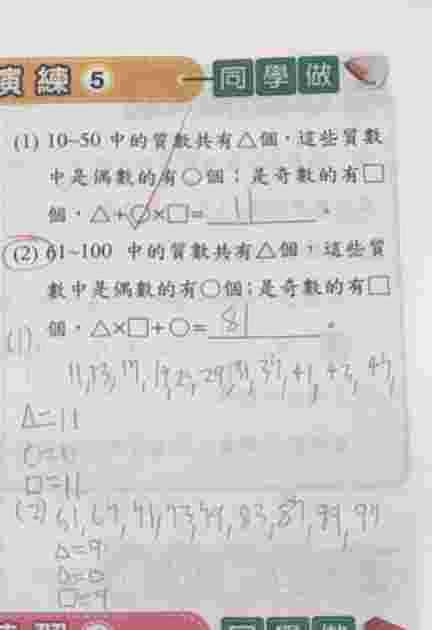 演練 5 同學做
(1) 10~50 中的質數共有△個，這些質數
中是偶數的有○個；是奇數的有□
個，△+○×□= 11 。
(2) 61~100 中的質數共有△個，這些質
數中是偶數的有○個；是奇數的有□
個，△×□+○= 81 。
(1)
11,13,17,19,23,29,31,37,41,43,47,
△=11
○=0
□=11
(2) 61,67,71,73,79,83,89,
△=9
○=0
□=9